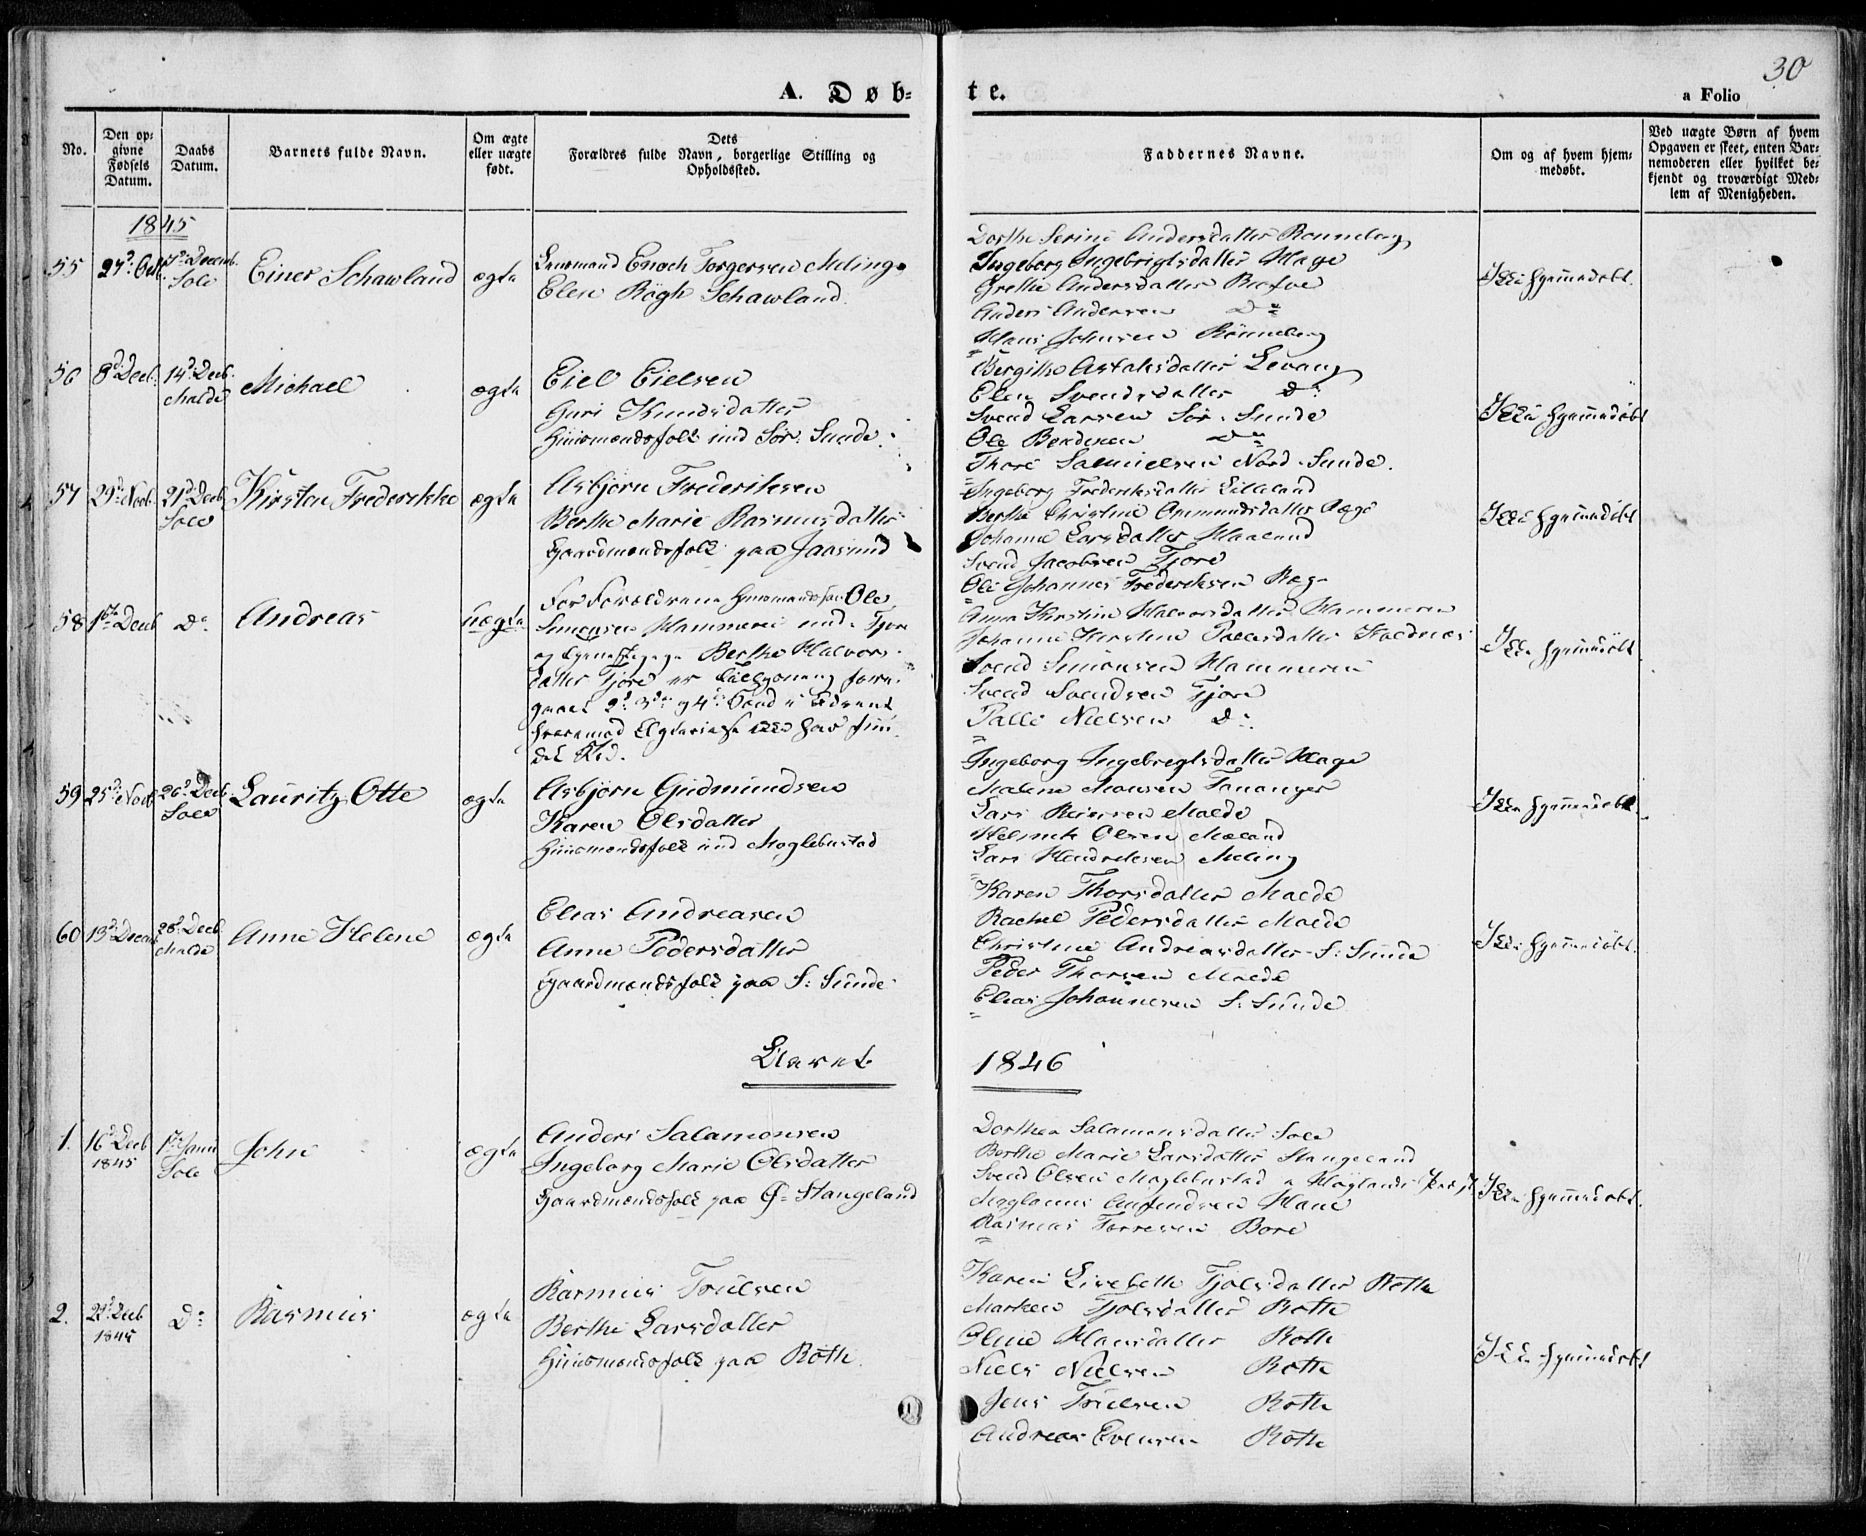 30
A. Døb-
te.
a Folio
No.
Den op-
givne
Fødsels
Datum.
Daabs
Datum.
Barnets fulde Navn.
Om ægte
eller uægte
født.
Dets
Forældres fulde Navn, borgerlige Stilling og
Opholdssted.
Faddernes Navne.
Om og af hvem hjem-
medøbt.
Ved uægte Børn af hvem
Opgaven er skeet, enten Bar-
nemoderen eller hvilket be-
kjendt og troværdigt Med-
lem af Menigheden.
1845
55
Sole
Einer Schawland
ægte
Lensmand Enoch Torgersen Meling
Elen Bögh Schawland
Dorthe Serine Andersdatter Rønneberg
Ingeborg Ingebrigtsdatter Hage
Grethe Andersdatter
Anders Andersen Do
Hans Johnsen Rönneberg
Ikke hjemmedøbt.
56
8de Decb.
14de Decb.
Malde
Michael
ægte
Eiel Eielsen
Guri Knudsdatter
Huusmandsfolk und Sør-Sunde.
Bergithe Aslaksdatter Levang
Elen Svendsdatter Do
Svend Larsen Sør-Sunde
Ole Do
Thore Samuelsen Nord-Sunde.
Ikke hjemmedøbt
57
29de Novb.
21de Decb
Sole
Kirsten Frederikke
ægte
Asbjørn Frederiksen
Berthe Marie Rasmusdatter
Gaardmandsfolk paa Jaasund
Ingeborg Frederiksdatter Lilleland
Berthe Christine Ommundsdatter Ræge
Johanne Larsdatter Haaland
Svend Jacobsen Tjore
Ole Johannes Frederiksen Ræge
Ikke hjemmedøbt
58
1ste Decb
Do
Andreas
uægte
For Forældrene Huusmandssøn Ole
Simonsen Hammeren und. Tjore
og Tjenestepige Berthe Halvors-
datter Tjore er Tillysning fore-
gaaet 2d 3d og 4de Sønd i Advent
hvorimod Ægtevielse ikke har fun-
det Sted.
Anne Kirstine Halvorsdatter Hammeren
Johanne Kirstine Pallesdatter Koldnes
Svend Simonsen Hammeren
Svend Svendsen Tjore
Palle Nielsen Do
Ikke hjemmedøbt
59
25de Novb
26de Decb
Sole
Lauritz Otte
ægte
Asbjørn Gudmundsen
Karen Olsdatter
Huusmandsfolk und Myglebustad
Ingeborg Ingebregtsdatter Hage
Malene Monsen Tananger
Lars Reiersen Malde
Helmik Olsen Mæland
Lars Hendriksen Meling
Ikke hjemmedøbt.
60
13de Decemb
28de Decb.
Malde
Anne Helene
ægte
Elias Andreasen
Anne Pedersdatter
Gaardmandsfolk paa S: Sunde
Karen Thorsdatter Malde
Rachel Pedersdatter Malde
Christine Andreasdatter S: Sunde
Peder Thorsen Malde
Elias Johannesen S: Sunde
Ikke hjemmedøbt.
Aaret
1846
1.
16de Decb
1845
1ste Janu
Sole
John
ægte
Anders Salamonsen
Ingeborg Marie Olsdatter
Gaardmandsfolk paa Ø: Stangeland
Dorthea Salamonsdatter Sole
Berthe Marie Larsdatter Stangeland
Svend Olsen Myglebustad i Høylands
Hane
Rasmus Torresen Bore
Ikke hjemmedøbt.
2.
Decb
1845
Do
Rasmus
ægte
Rasmus Troelsen
Berthe Larsdatter
Huusmandsfolk paa Röth.
Karen Lisebeth Tjølsdatter Röth
Marken Tjølsdatter Röth
Oline Hansdatter Röth
Niels Nielsen Röth
Jens Troelsen Röth
Andreas Evensen Röth
Ikke hjemmedøbt